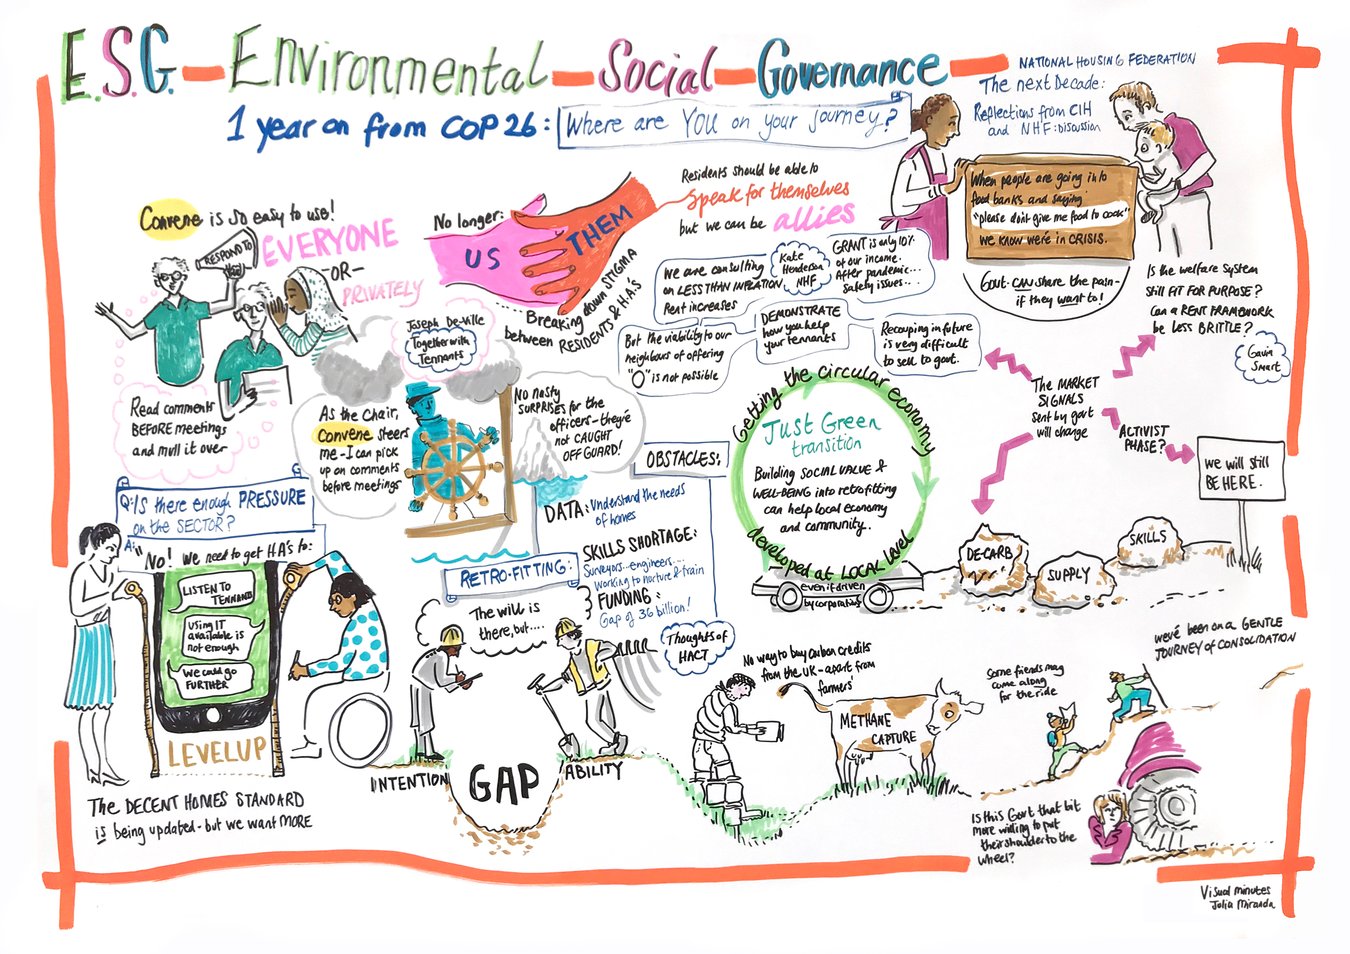 E.S.G. - Environmental - Social - Governance
1 year on from COP 26: Where are YOU on your journey?
NATIONAL HOUSING FEDERATION
The next Decade:
Reflections from CIH
and NHF: discussion
Convene is so easy to use!
RESPOND TO
EVERYONE
-OR-
PRIVATELY
Read comments
BEFORE meetings
and mull it over
No longer:
US
THEM
Breaking down STIGMA
between RESIDENTS & H.A'S
Residents should be able to
Speak for themselves
but we can be allies
When people are going into
food banks and saying
"please don't give me food to cook"
we know we're in CRISIS.
Govt. CAN share the pain-
if they want to!
Is the welfare system
still FIT FOR PURPOSE?
Can a RENT FRAMEWORK
be LESS BRITTLE?
Gavin
Smart
We are consulting
on LESS THAN INFLATION
Rent increases
Kate
Henderson
NHF
GRANT is only 10%
of our income.
After pandemic...
safety issues...
But the viability to our
neighbours of offering
"O" is not possible
DEMONSTRATE
how you help
your tennants
Recouping in future
is very difficult
to sell to govt.
Joseph De-Ville
Together with
Tennants
As the Chair,
Convene steers
me - I can pick
up on comments
before meetings
No nasty
SURPRISES for the
officers - they're
not CAUGHT
OFF GUARD!
The MARKET
SIGNALS
sent by govt
will change
ACTIVIST
PHASE?
We will still
BE HERE.
DE-CARB
SUPPLY
SKILLS
Getting the circular economy
Just Green
transition
Building SOCIAL VALUE &
WELL-BEING into retrofitting
can help local economy
and community..
developed at LOCAL level
even if driven
by corporations
Q: Is there enough PRESSURE
on the SECTOR?
A: "No! We need to get H.A's to:
LISTEN TO
TENNANTS
Using IT
available is
not enough
We could go
FURTHER
LEVEL UP
The DECENT HOMES STANDARD
is being updated - but we want MORE
OBSTACLES:
DATA: Understand the needs
of homes
SKILLS SHORTAGE:
Surveyors... engineers....
Working to nurture & train
FUNDING:
Gap of 36 billion!
RETRO-FITTING:
Thoughts of
HACT
The will is
there, but....
INTENTION
GAP
ABILITY
No way to buy carbon credits
from the UK - apart from
farmers'
METHANE
CAPTURE
We've been on a GENTLE
JOURNEY of CONSOLIDATION
Some friends may
come along
for the ride
Is this Govt that bit
more willing to put
their shoulder to the
wheel?
Visual minutes
Julia Miranda